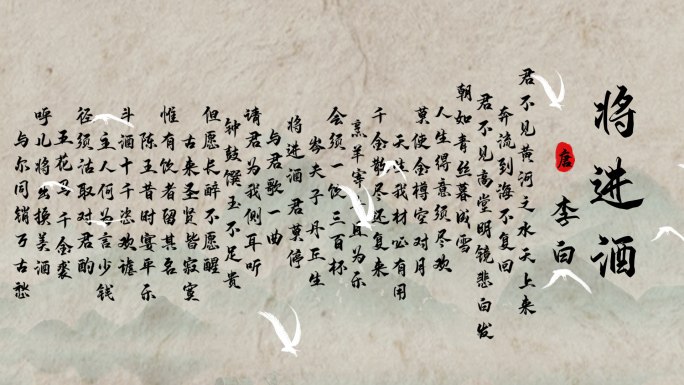 将进酒
唐
李白
君不见黄河之水天上来
奔流到海不复回
君不见高堂明镜悲白发
朝如青丝暮成雪
人生得意须尽欢
莫使金樽空对月
天生我材必有用
千金散尽还复来
烹羊宰牛且为乐
会须一饮三百杯
岑夫子 丹丘生
将进酒 君莫停
与君歌一曲
请君为我侧耳听
钟鼓馔玉不足贵
但愿长醉不愿醒
古来圣贤皆寂寞
惟有饮者留其名
陈王昔时宴平乐
斗酒十千恣欢谑
主人何为言少钱
径须沽取对君酌
五花马 千金裘
呼儿将出换美酒
与尔同销万古愁